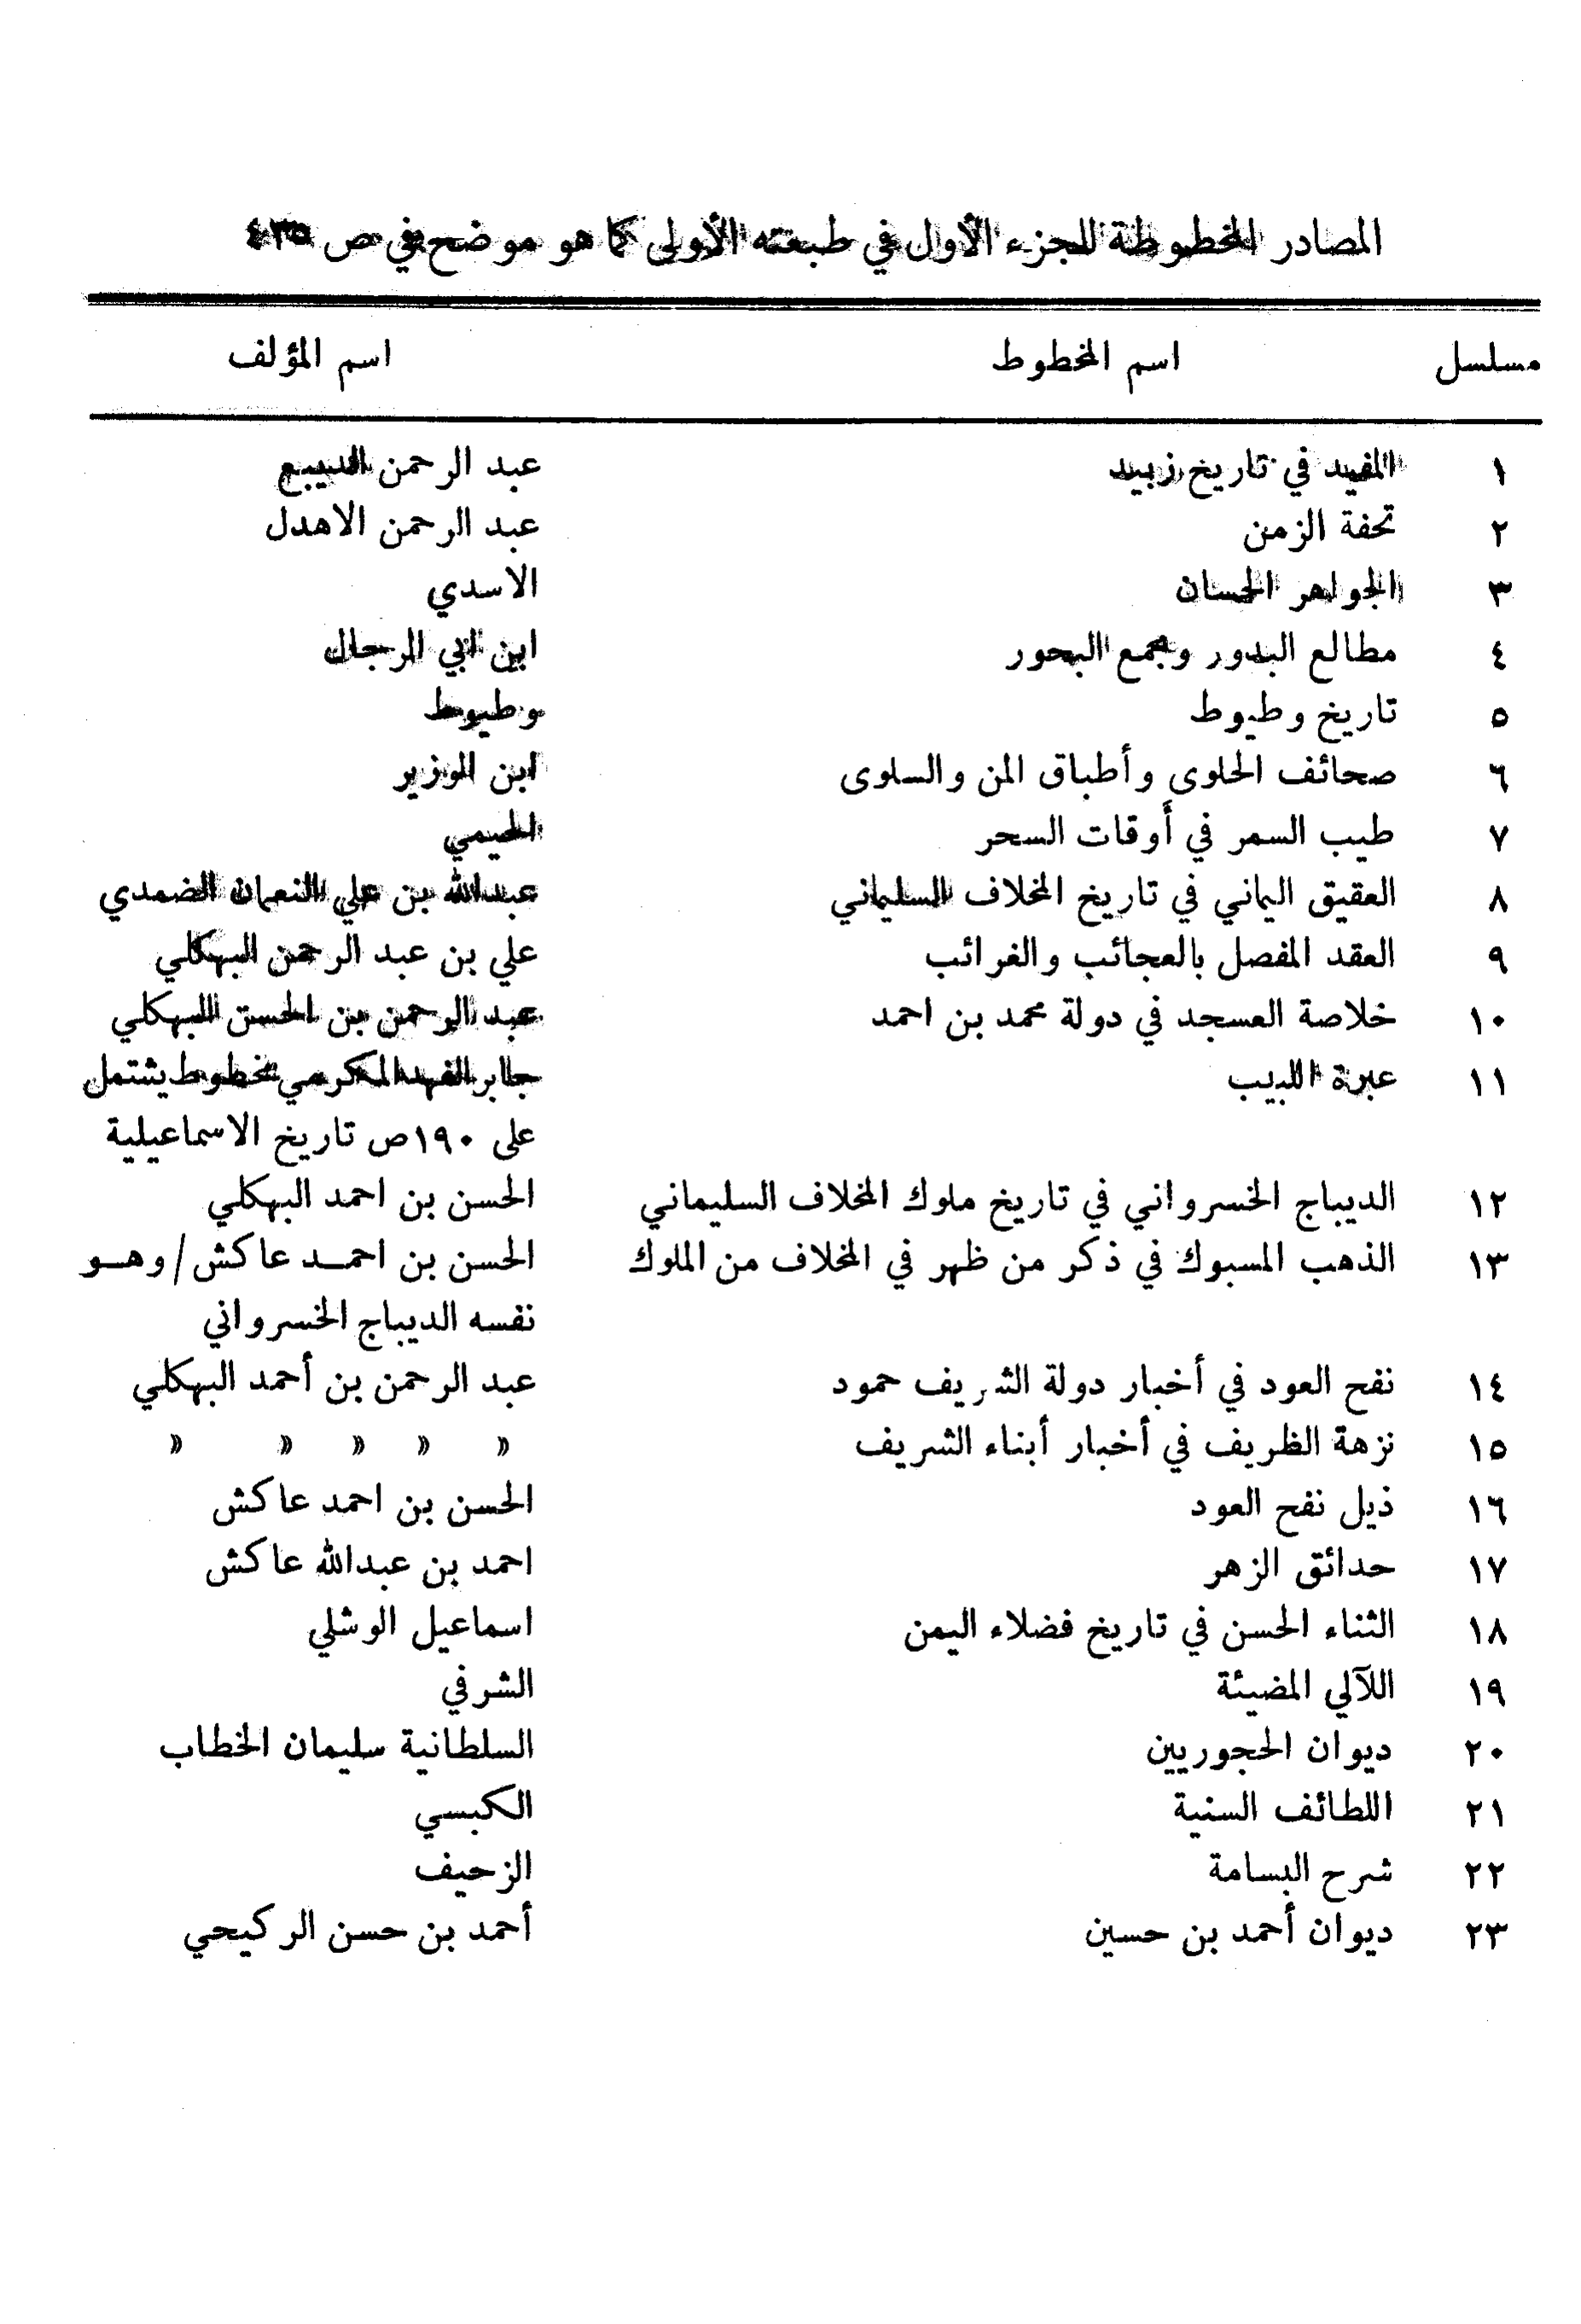 المصادر المخطوطة للجزء الأول في طبعته الأولى كما هو موضح في ص ٤٣٥
مسلسل اسم المخطوط اسم المؤلف
١ المفيد في تاريخ زبيد عبد الرحمن الديبع
٢ تحفة الزمن عبد الرحمن الاهدل
٣ الجواهر الحسان الاسدي
٤ مطالع البدور ومجمع البحور ابن ابي الرجال
٥ تاريخ وطيوط وطيوط
٦ صحائف الحلوى وأطباق المن والسلوى ابن الوزير
٧ طيب السمر في أوقات السحر الحيمي
٨ العقيق اليماني في تاريخ المخلاف السليماني عبدالله بن علي النعمان الضمدي
٩ العقد المفصل بالعجائب والغرائب علي بن عبد الرحمن البهكلي
١٠ خلاصة العسجد في دولة محمد بن احمد عبد الرحمن بن الحسن البهكلي
١١ عبرة اللبيب جابر الفهد المكرمي مخطوط يشتمل
على ١٩٠ص تاريخ الاسماعيلية
١٢ الديباج الخسرواني في تاريخ ملوك المخلاف السليماني الحسن بن احمد البهكلي
١٣ الذهب المسبوك في ذكر من ظهر في المخلاف من الملوك الحسن بن احمـد عاكش/وهـو
نفسه الديباج الخسرواني
١٤ نفح العود في أخبار دولة الشريف حمود عبد الرحمن بن أحمد البهكلي
١٥ نزهة الظريف في أخبار أبناء الشريف » » » » »
١٦ ذيل نفح العود الحسن بن احمد عاكش
١٧ حدائق الزهر احمد بن عبدالله عاكش
١٨ الثناء الحسن في تاريخ فضلاء اليمن اسماعيل الوشلي
١٩ اللآلي المضيئة الشرفي
٢٠ ديوان الحجوريين السلطانية سليمان الخطاب
٢١ اللطائف السنية الكبسي
٢٢ شرح البسامة الزحيف
٢٣ ديوان أحمد بن حسين أحمد بن حسن الركيحي